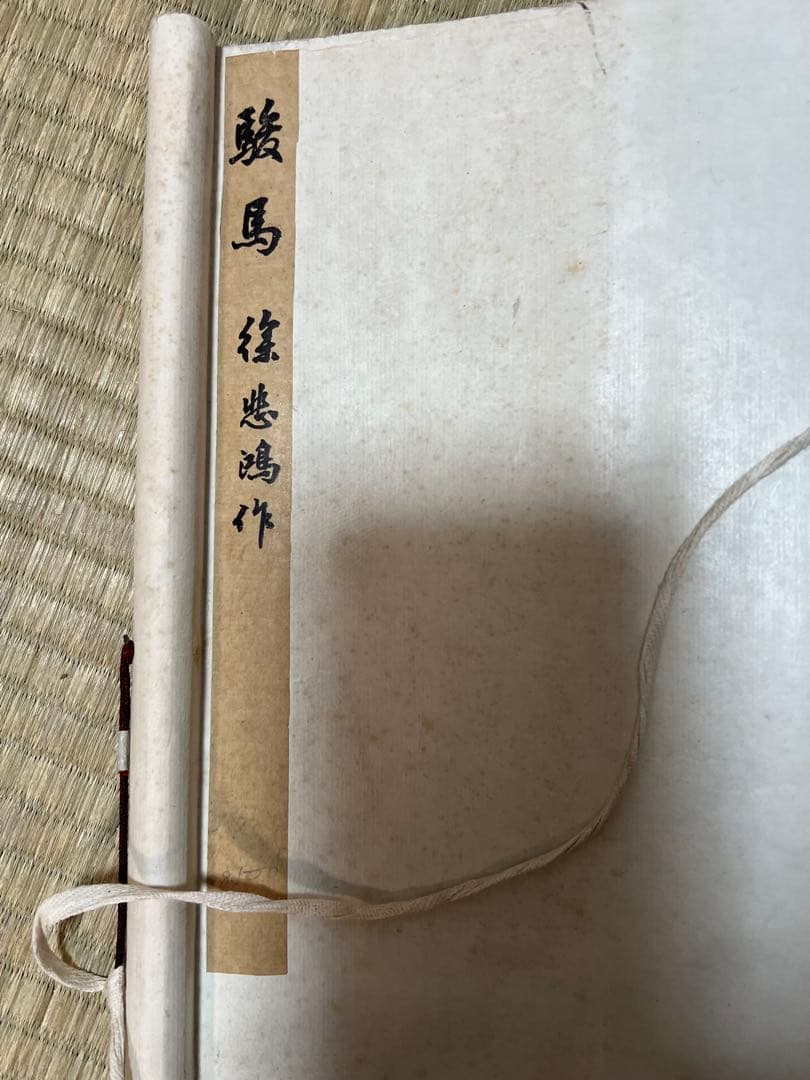 駿馬 徐悲鴻作